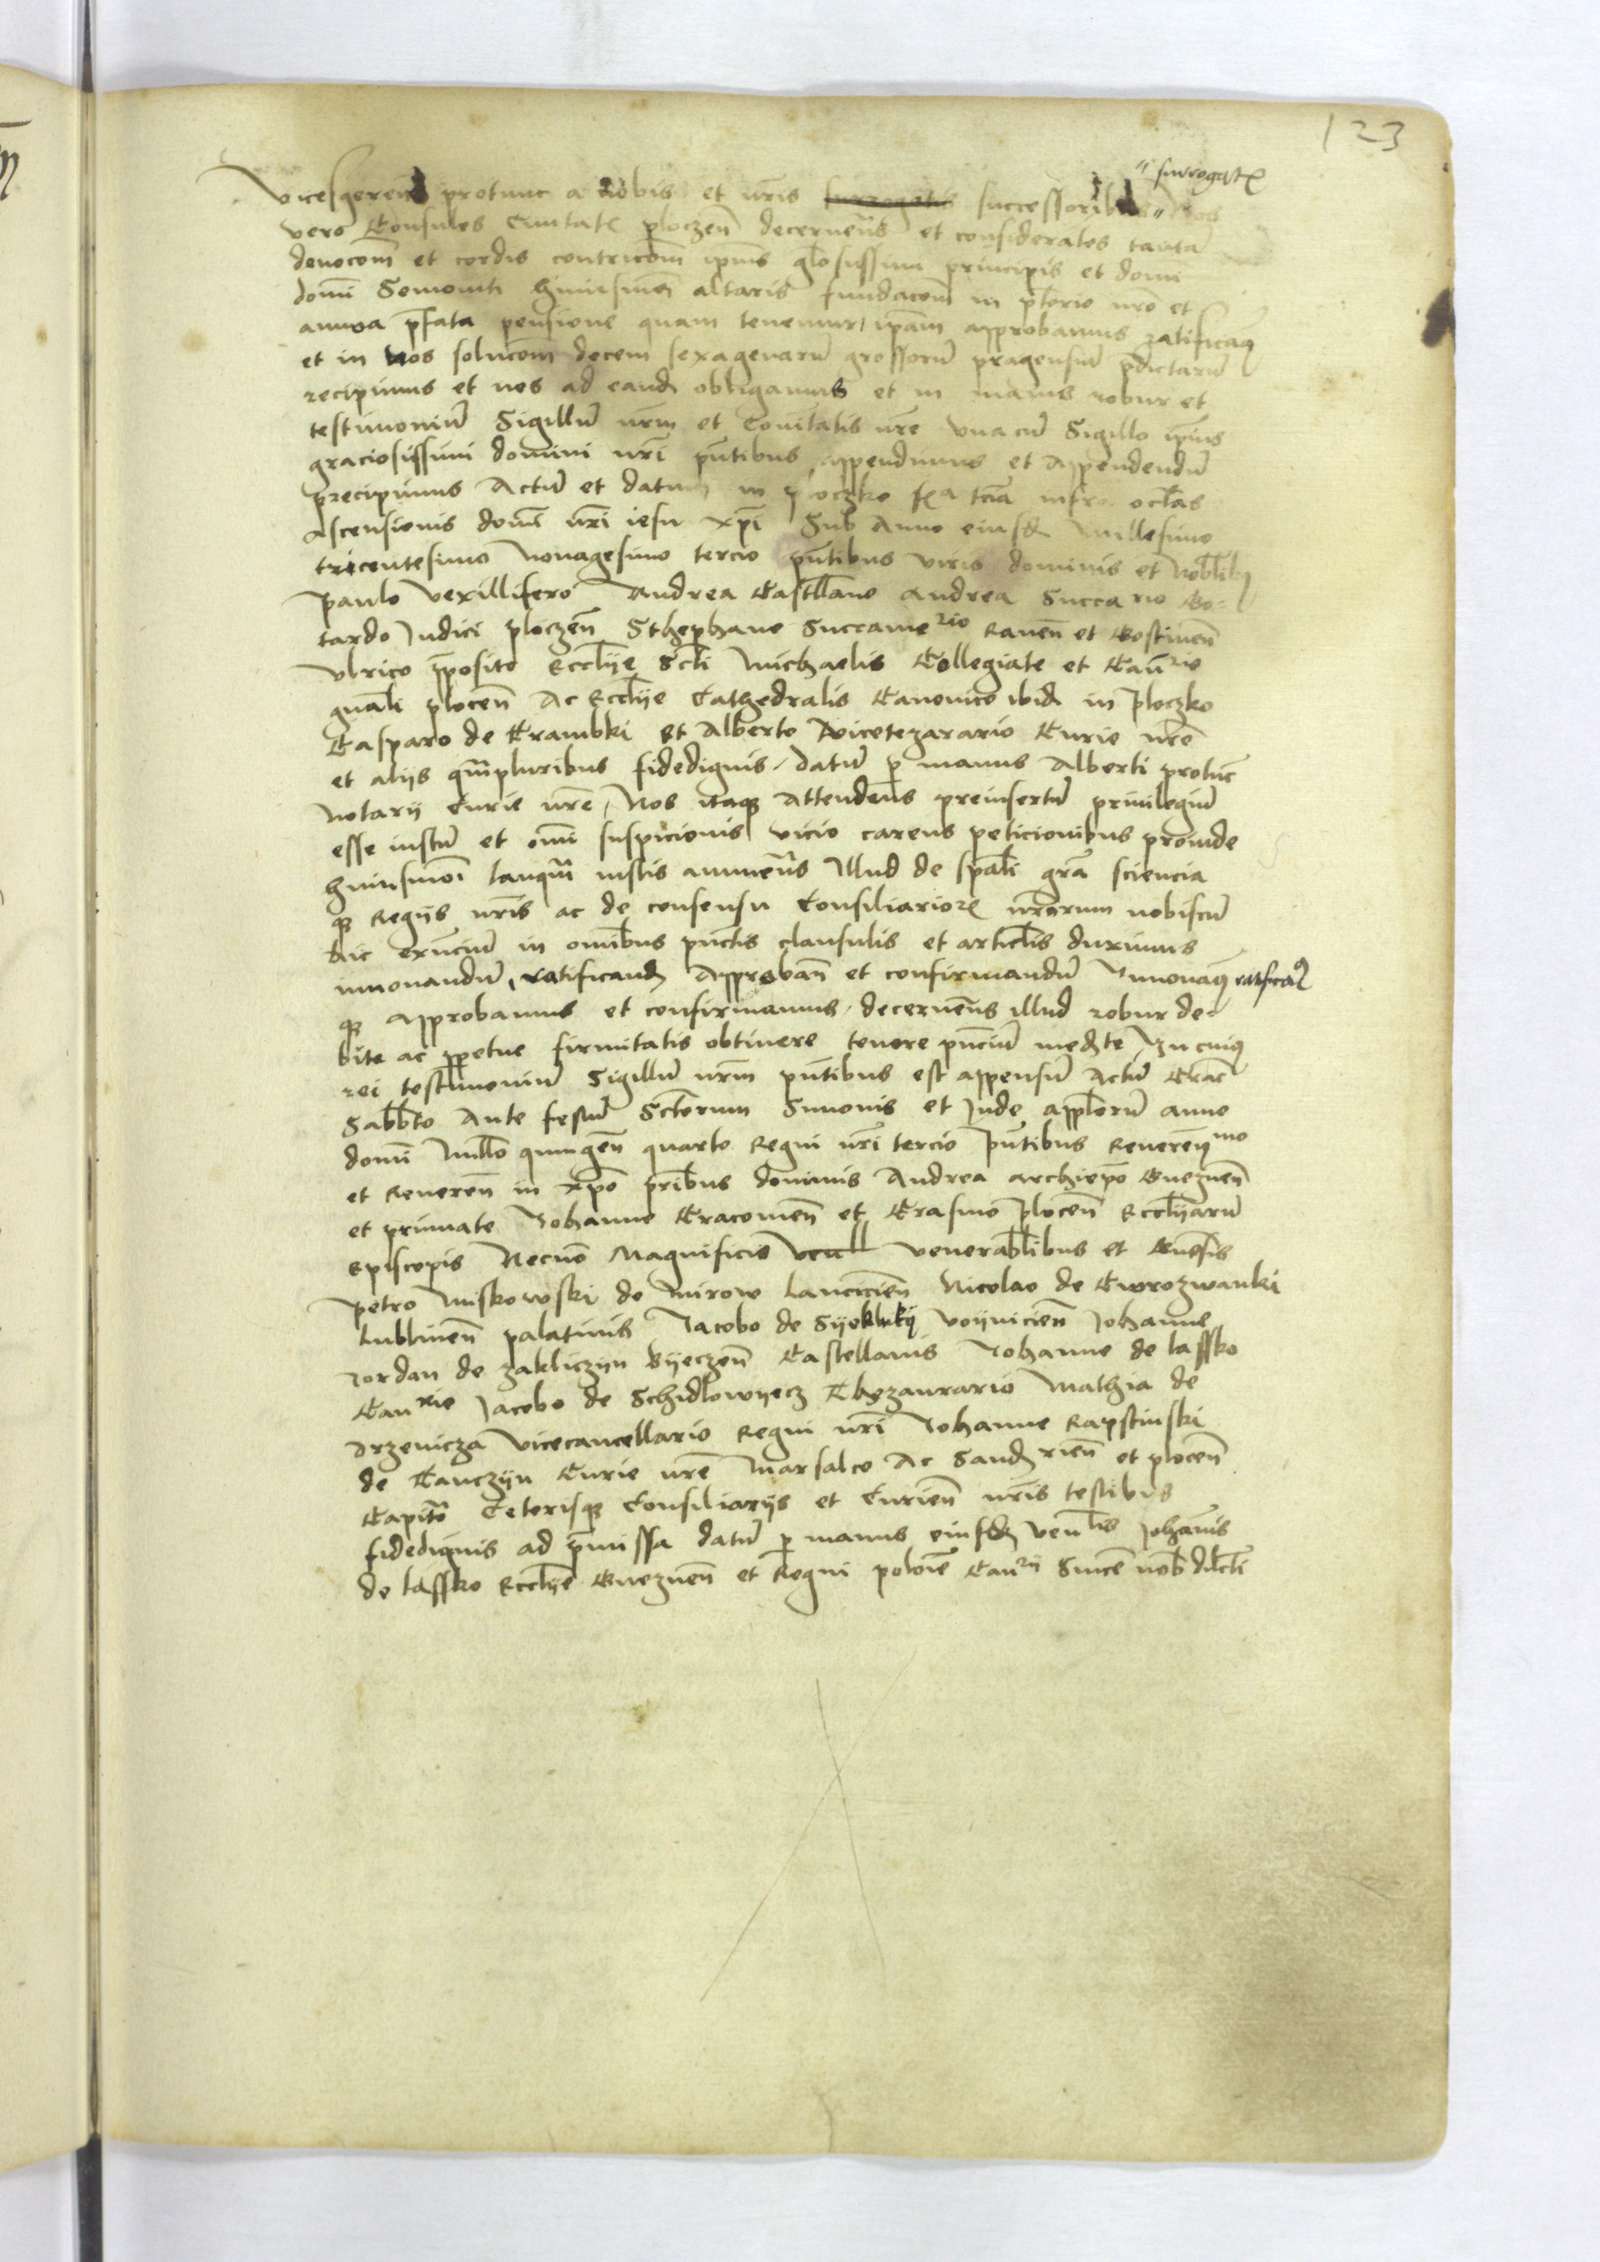 123
surrogatis
vicesgeren protunc a Nobis et nr̄is surrogatis successoribus Nos
vero Consules Civitatis ploczen̄ decernen̄s et considerates tantā
devocōem et cordis contricōem ipīus gl̄osissimi principis et domī
domī Semoviti huiusmōi altaris fundacōem in p̄torio nr̄o et
annua p̄fata pensione quam tenemur ip̄am approbamus ratificaq
et in Nos solucōem decem sexagenarū grossorū pragensiū p̄dictarū
recipimus et nos ad eand obligamus et in maius robur et
testimoniū Sigillū nr̄m et Civitatis nr̄e una cū Sigillo ip̄ius
graciosissimi domini nr̄i p̄ntibus appendimus et Appendendū
precipimus Actū et datum in ploczko fīa t̄cia infra octāas
Ascensionis domī nr̄i iesu xp̄i Sub Anno eiusd Millesimo
tricentesimo Nonagesimo tercio p̄ntibus viris dominis et Nobl̄ibq
paulo vexillifero Andrea Castll̄ano andrea Succario Go-
tardo Iudici ploczen̄ Sthephano Succamerio Raven̄ et Gostinen̄
Ulrico p̄posito Eccl̄ije Scti Michaelis Collegiate et Can̄rio
gn̄ali plocen̄ Ac Eccl̄ije Cathedralis Canonico ibid in ploczko
Casparo de Crambki Et Alberto vicetezarario Curie nr̄e
et alijs q̄mpluribus fidedignis datū p manus Alberti protūc
Notarij Curie nr̄e Nos itaq Attenden̄s preinsertū privilegiū
esse iustū et om̄i suspicionis vicio carens peticionibus proinde
huiusmōi tanq̄m iustis annuen̄s Illud de sp̄ali gr̄a sciencia
q Regijs nr̄is ac de consensu Consiliariorz nr̄orum nobiscū
hic existn̄ciū in om̄ibus pūctis clausulis et articl̄is duximus
innovandū ratificand Approban̄ et confirmandū Innovaq ratificaq
q Approbamus et confirmamus decernen̄s illud robur de-
bite ac p̄petue firmitatis obtinere tenore p̄nciū medte In cuiq
rei testimoniū Sigillū nr̄m p̄ntibus est appensū Actū Crac̄
Sabb̄to Ante festū Sctorum Simonis et Jude Appl̄orū anno
domī Mill̄o quingen̄ quarto Regni nr̄i tercio p̄ntibus Reveren̄mo
et Reveren̄ in xp̄o pr̄ibus dominis Andrea archiep̄o Gneznen̄
et primate Johanne Cracovien̄ et Erasmo plocen̄ Eccl̄ijarū
Episcopis Necnō Magnificis venerabl̄ibus et Gn̄osis
petro Miskowski de Mirow lancicien̄ Nicolao de Cwrozwanki
lublinen̄ palatinis Jacobo de Syeklukij voijnicien̄ Johanne
Jordan de zakliczijn Bijeczen̄ Castellanis Johanne de lassko
Can̄rio Jacobo de Schidlowijecz Thezaurario Mathia de
Drzevicza vicecancellario Regni nr̄i Johanne Rapstinski
de Canczijn Curie nr̄e Marsalco Ac Sandrien̄ et plocen̄
Capit̄o Ceterisq Consiliarijs et Curien̄ nr̄is testibus
fidedignis ad p̄missa datū p manus eiusdz ven̄lis Johānis
de lassko Eccl̄ije Gneznen̄ et Regni polonīe Can̄rij Sincē nob̄ dilcti